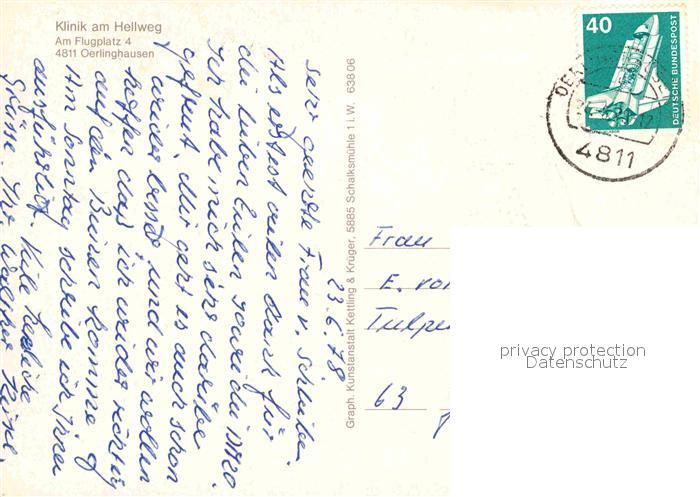 Klinik am Hellweg
Am Flugplatz 4
4811 Oerlinghausen
23.6.78
Sehr geehrte Frau v. Schuber.
Als erstest vielen Dank für
die lieben Zeilen sowie die
Ich habe mich sehr darüber
gefreut. Mir geht es auch schon
wieder besser und wir wollen
hoffen das ich wieder richtig
auf den Beinen komme
Am Sonntag schreibe ich Ihnen
ausführlich. Viele herzliche
Grüsse. Ihr Walther
Graph. Kunstanstalt Kettling & Krüger, 5885 Schalksmühle 1 i.W. 63806
40
DEUTSCHE BUNDESPOST
4811
Frau
E. von
Tulpe
63
privacy protection
Datenschutz